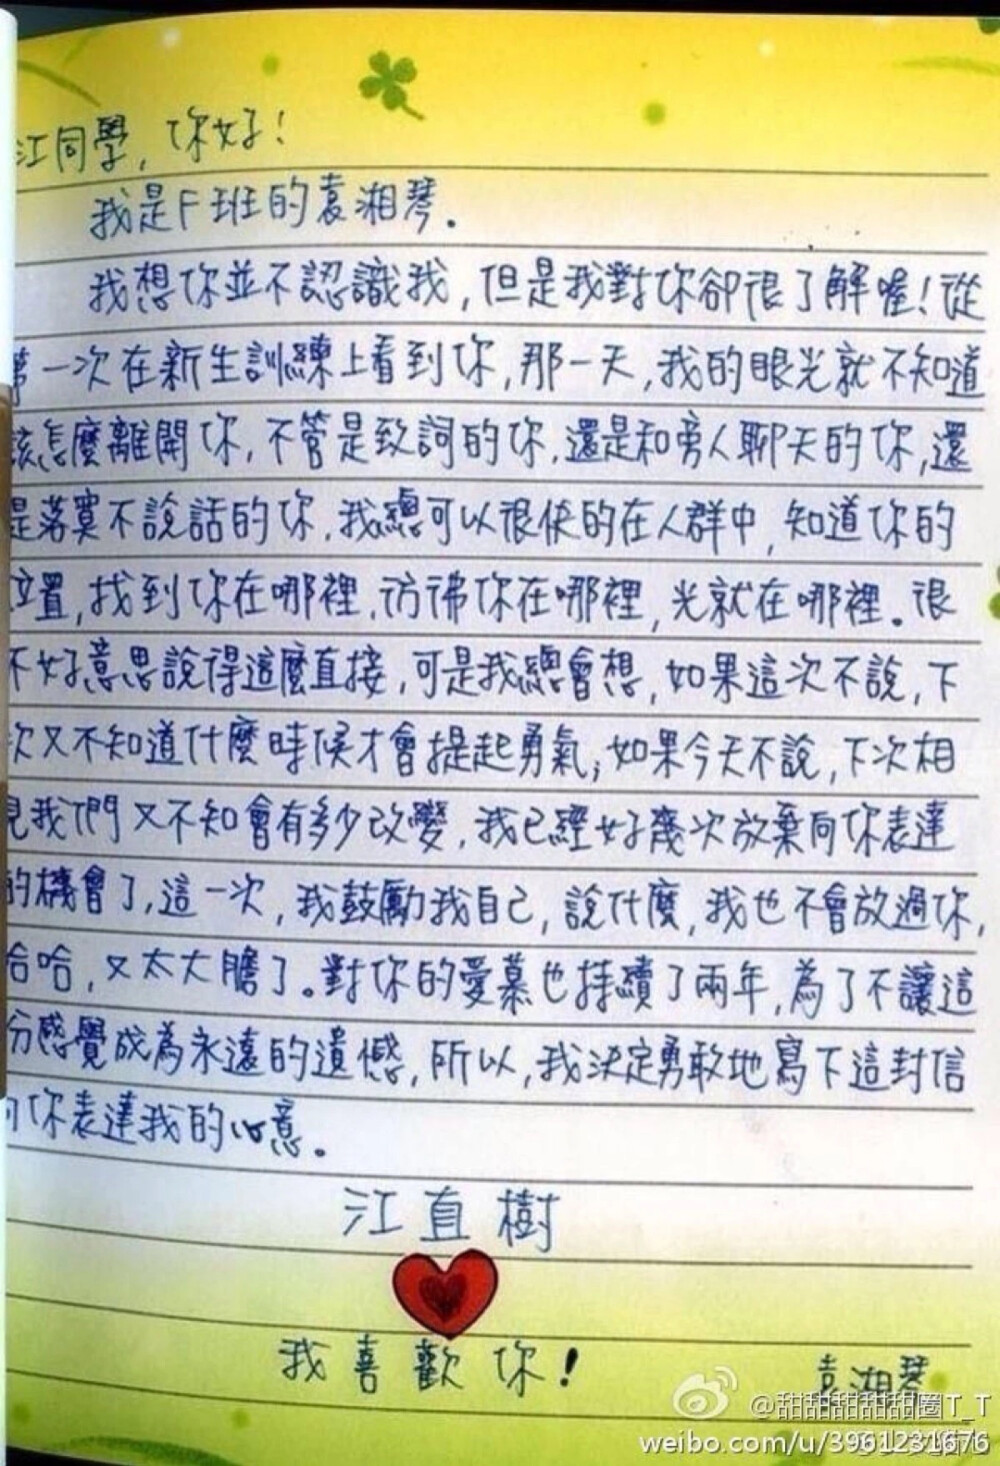 江同學，你好！
我是F班的袁湘琴．
我想你並不認識我，但是我對你卻很了解喔！從
第一次在新生訓練上看到你，那一天，我的眼光就不知道
該怎麼離開你，不管是致詞的你，還是和旁人聊天的你，還
是落寞不說話的你．我總可以很快的在人群中，知道你的
位置，找到你在哪裡．彷彿你在哪裡，光就在哪裡。很
不好意思說得這麼直接，可是我總會想，如果這次不說，下
次又不知道什麼時候才會提起勇氣；如果今天不說，下次相
見我們又不知會有多少改變，我已經好幾次放棄向你表達
的機會了，這一次，我鼓勵我自己，說什麼，我也不會放過你，
哈哈，又太大膽了。對你的愛慕也持續了兩年，為了不讓這
份感覺成為永遠的遺憾，所以，我決定勇敢地寫下這封信
向你表達我的心意。
江直樹
我喜歡你！
袁湘琴
@甜甜甜甜甜圈T_T
weibo.com/u/3961231676